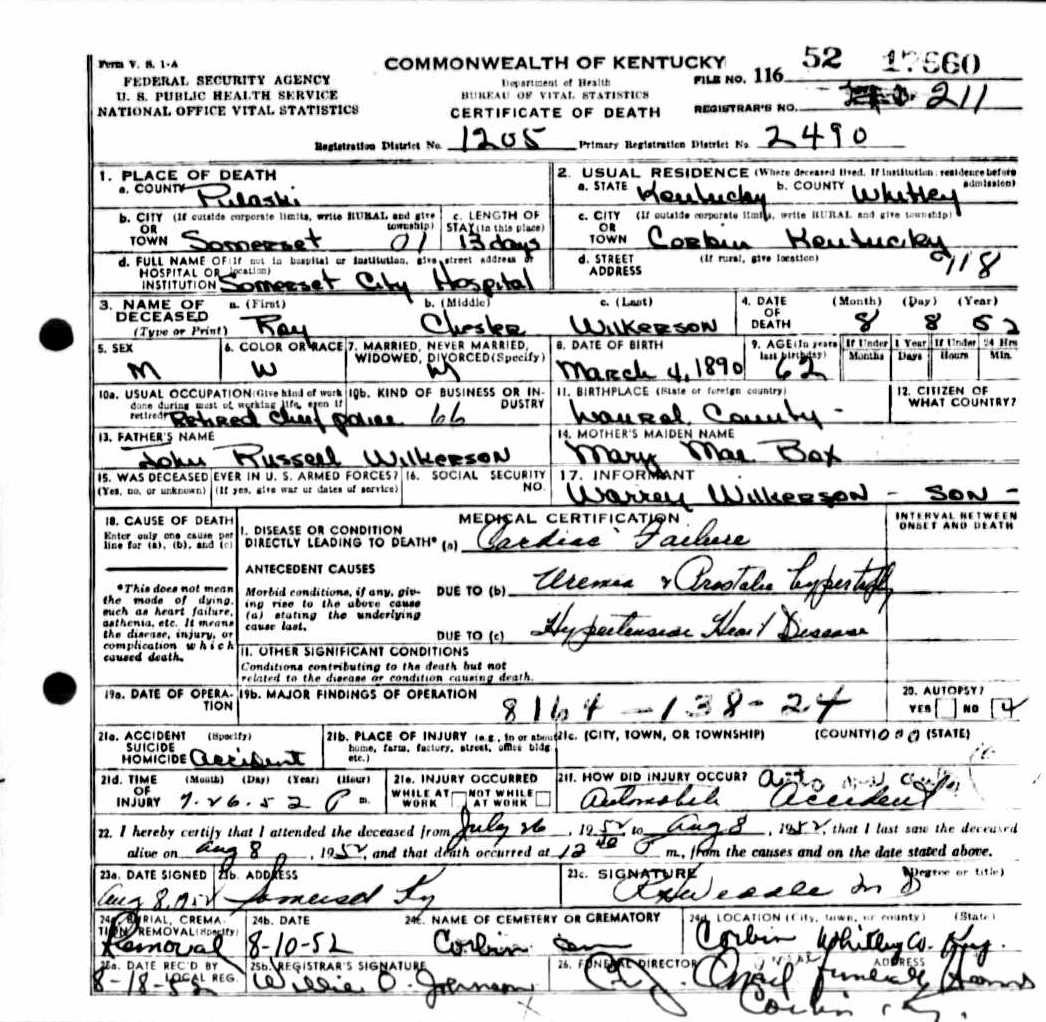 Form V. S. 1-A
COMMONWEALTH OF KENTUCKY
FEDERAL SECURITY AGENCY
U. S. PUBLIC HEALTH SERVICE
NATIONAL OFFICE VITAL STATISTICS
Department of Health
BUREAU OF VITAL STATISTICS
CERTIFICATE OF DEATH
FILE NO. 116 52 17660
REGISTRAR'S NO. 211
Registration District No. 1205 Primary Registration District No. 2490
1. PLACE OF DEATH
a. COUNTY Pulaski
2. USUAL RESIDENCE (Where deceased lived. If institution: residence before admission)
a. STATE Kentucky b. COUNTY Whitley
b. CITY (If outside corporate limits, write RURAL and give township)
OR TOWN Somerset 01
c. LENGTH OF STAY (in this place) 13 days
c. CITY (If outside corporate limits, write RURAL and give township)
OR TOWN Corbin Kentucky
d. FULL NAME OF (If not in hospital or institution, give street address or location)
HOSPITAL OR INSTITUTION Somerset City Hospital
d. STREET ADDRESS (If rural, give location)
118
3. NAME OF DECEASED (Type or Print)
a. (First) b. (Middle) c. (Last)
Ray Chester Wilkerson
4. DATE OF DEATH (Month) (Day) (Year)
8 8 52
5. SEX M
6. COLOR OR RACE W
7. MARRIED, NEVER MARRIED, WIDOWED, DIVORCED (Specify)
8. DATE OF BIRTH March 4, 1890
9. AGE (In years last birthday) 62
If Under 1 Year Months Days
If Under 24 Hrs Hours Min.
10a. USUAL OCCUPATION (Give kind of work done during most of working life, even if retired) Retired Chief police
10b. KIND OF BUSINESS OR INDUSTRY 66
11. BIRTHPLACE (State or foreign country) Laurel County -
12. CITIZEN OF WHAT COUNTRY?
13. FATHER'S NAME
John Russell Wilkerson
14. MOTHER'S MAIDEN NAME
Mary Mae Box
15. WAS DECEASED EVER IN U. S. ARMED FORCES?
(Yes, no, or unknown) (If yes, give war or dates of service)
16. SOCIAL SECURITY NO.
17. INFORMANT
Warren Wilkerson - SON -
18. CAUSE OF DEATH
Enter only one cause per line for (a), (b), and (c)
MEDICAL CERTIFICATION
INTERVAL BETWEEN ONSET AND DEATH
I. DISEASE OR CONDITION DIRECTLY LEADING TO DEATH* (a) Cardiac Failure
*This does not mean the mode of dying, such as heart failure, asthenia, etc. It means the disease, injury, or complication which caused death.
ANTECEDENT CAUSES
Morbid conditions, if any, giving rise to the above cause (a) stating the underlying cause last.
DUE TO (b) Uremia & Prostatic hypertrophy
DUE TO (c) Hypertensive Heart Disease
II. OTHER SIGNIFICANT CONDITIONS
Conditions contributing to the death but not related to the disease or condition causing death.
19a. DATE OF OPERATION
19b. MAJOR FINDINGS OF OPERATION
8164-138-24
20. AUTOPSY?
YES NO
21a. ACCIDENT SUICIDE HOMICIDE (Specify) Accident
21b. PLACE OF INJURY (e.g., in or about home, farm, factory, street, office bldg. etc.)
21c. (CITY, TOWN, OR TOWNSHIP) (COUNTY) (STATE)
21d. TIME OF INJURY (Month) (Day) (Year) (Hour)
7-26-52 P m.
21e. INJURY OCCURRED
WHILE AT WORK NOT WHILE AT WORK
21f. HOW DID INJURY OCCUR? Auto
Automobile Accident
22. I hereby certify that I attended the deceased from July 26, 1952, to Aug 8, 1952, that I last saw the deceased
alive on Aug 8, 1952, and that death occurred at 12 40 P m., from the causes and on the date stated above.
23a. DATE SIGNED 23b. ADDRESS 23c. SIGNATURE (Degree or title)
Aug 8 1952 Somerset Ky Weddle M D
24a. BURIAL, CREMATION, REMOVAL (Specify) Removal
24b. DATE 8-10-52
24c. NAME OF CEMETERY OR CREMATORY Corbin
24d. LOCATION (City, town, or county) (State) Corbin Whitley Co. Ky.
25a. DATE REC'D BY LOCAL REG. 8-18-52
25b. REGISTRAR'S SIGNATURE Willie O. Johnson
26. FUNERAL DIRECTOR ADDRESS
O'Neil Funeral Home
Corbin, Ky.